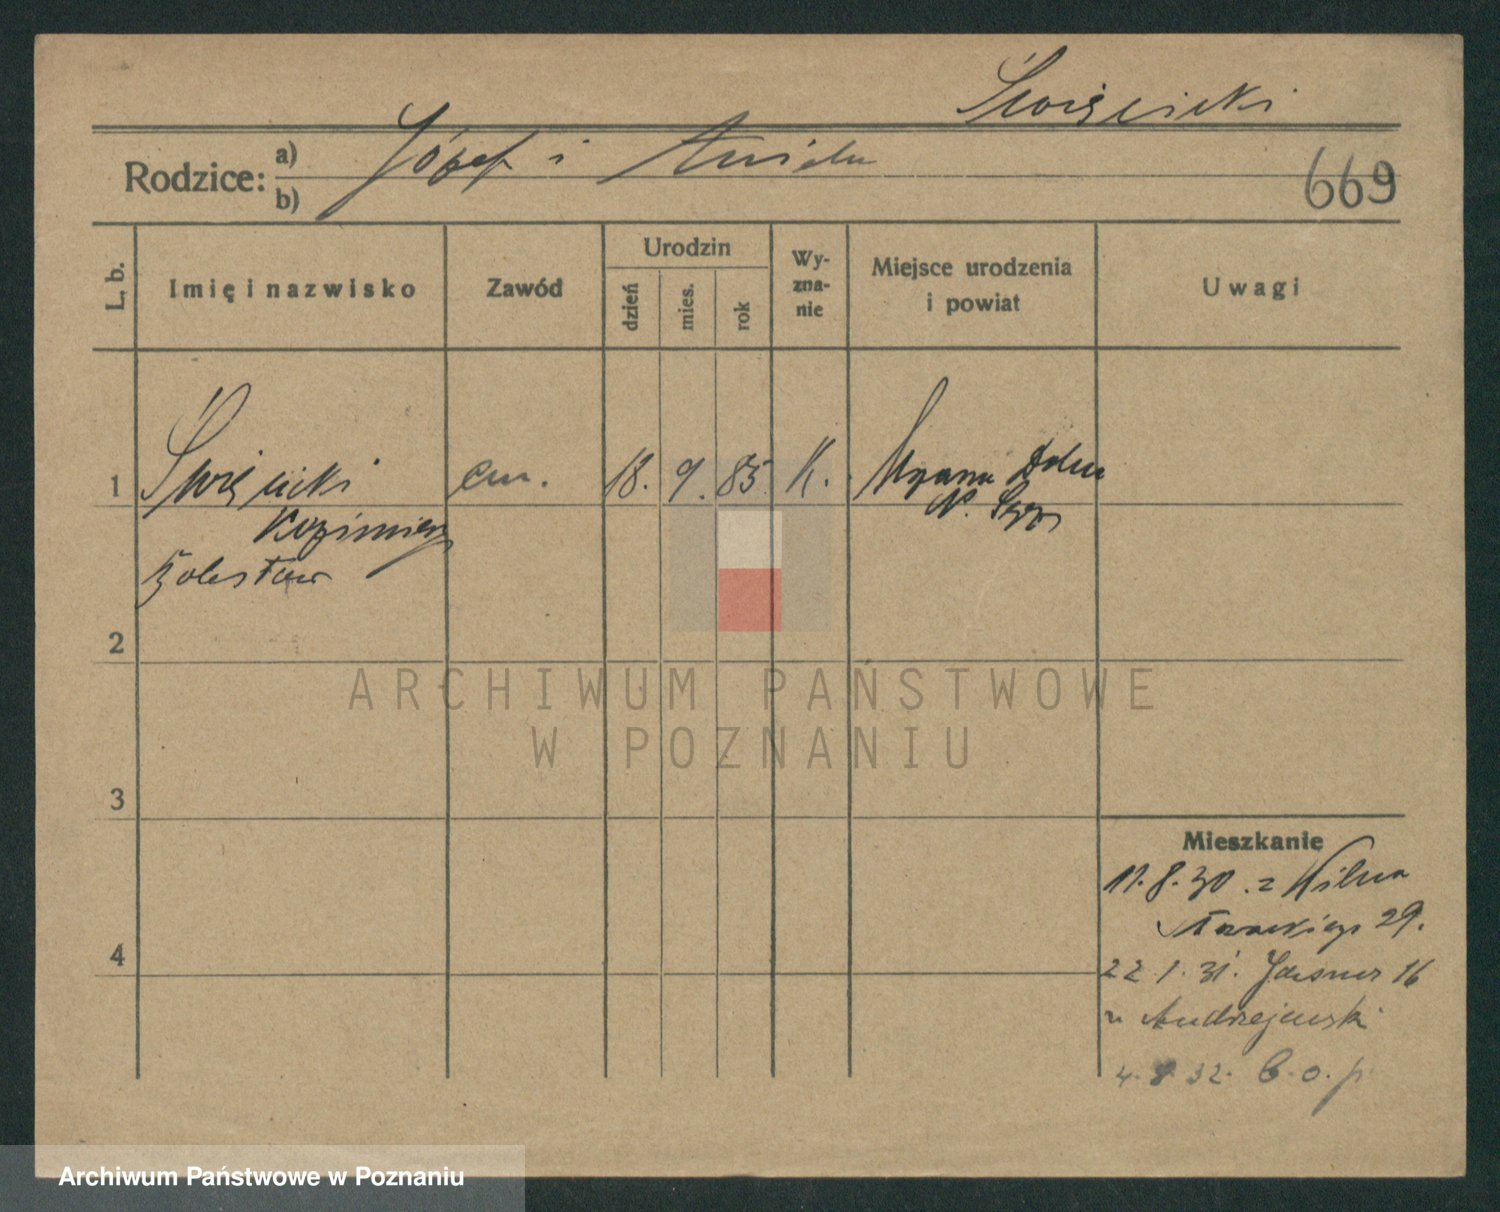 Święcicki
Rodzice:
a) Józef i Aniela
b)
669
L. b.
Imię i nazwisko
Zawód
Urodzin
dzień
mies.
rok
Wy-
zna-
nie
Miejsce urodzenia
i powiat
Uwagi
1 Święcicki em. 18. 9. 85 K. Mszana Dolna
Kazimierz
Bolesław
2
3
4
Mieszkanie
11.8.30. z Wilna
29.
22 1. 31. Jasna 16
u Andrzejewski
4. 32. b. o. p.
ARCHIWUM PAŃSTWOWE
W POZNANIU
Archiwum Państwowe w Poznaniu